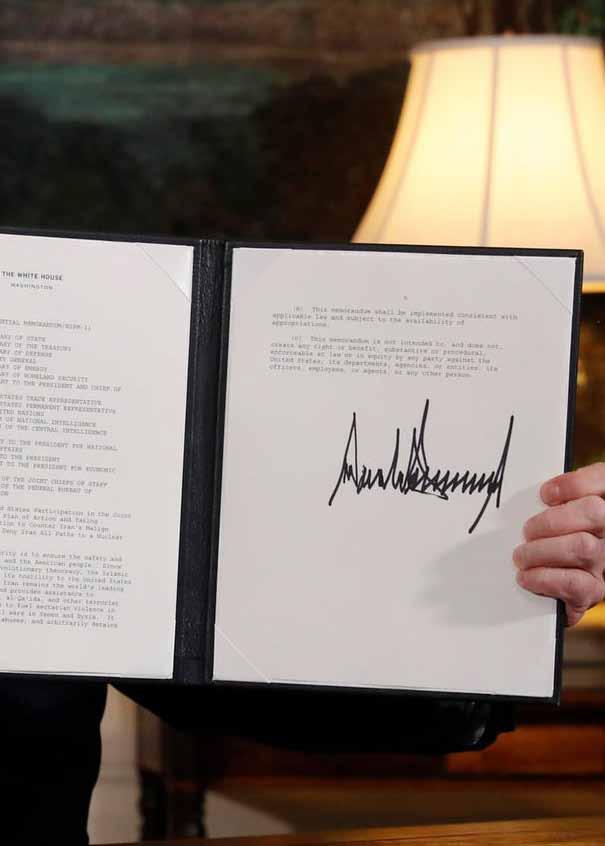 THE WHITE HOUSE
WASHINGTON
NTIAL MEMORANDUM/NSPM-11
ARY OF STATE
ARY OF THE TREASURY
ARY OF DEFENSE
EY GENERAL
ARY OF ENERGY
ARY OF HOMELAND SECURITY
ANT TO THE PRESIDENT AND CHIEF OF
STATES TRADE REPRESENTATIVE
STATES PERMANENT REPRESENTATIVE
ITED NATIONS
R OF NATIONAL INTELLIGENCE
R OF THE CENTRAL INTELLIGENCE
T TO THE PRESIDENT FOR NATIONAL
FFAIRS
TO THE PRESIDENT
T TO THE PRESIDENT FOR ECONOMIC
OF THE JOINT CHIEFS OF STAFF
OF THE FEDERAL BUREAU OF
ON
d States Participation in the Joint
Plan of Action and Taking
tion to Counter Iran's Malign
Deny Iran All Paths to a Nuclear
rity is to ensure the safety and
and the American people. Since
volutionary theocracy, the Islamic
its hostility to the United States
Iran remains the world's leading
and provides assistance to
al-Qa'ida, and other terrorist
to fuel sectarian violence in
l wars in Yemen and Syria. It
abuses, and arbitrarily detains
(b) This memorandum shall be implemented consistent with
applicable law and subject to the availability of
appropriations.
(c) This memorandum is not intended to, and does not,
create any right or benefit, substantive or procedural,
enforceable at law or in equity by any party against the
United States, its departments, agencies, or entities, its
officers, employees, or agents, or any other person.